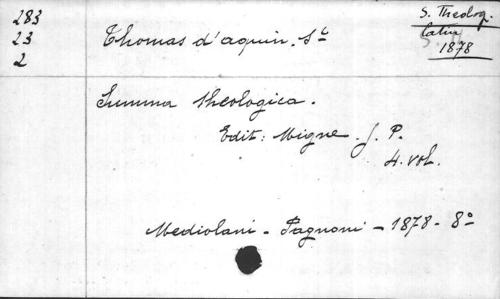 283
23
2
Thomas d'aquin. St
S. Theolog.
latin
1878
Summa theologica.
Edit: Migne. J. P.
4. vol.
Mediolani - Pagnoni - 1878 - 8°